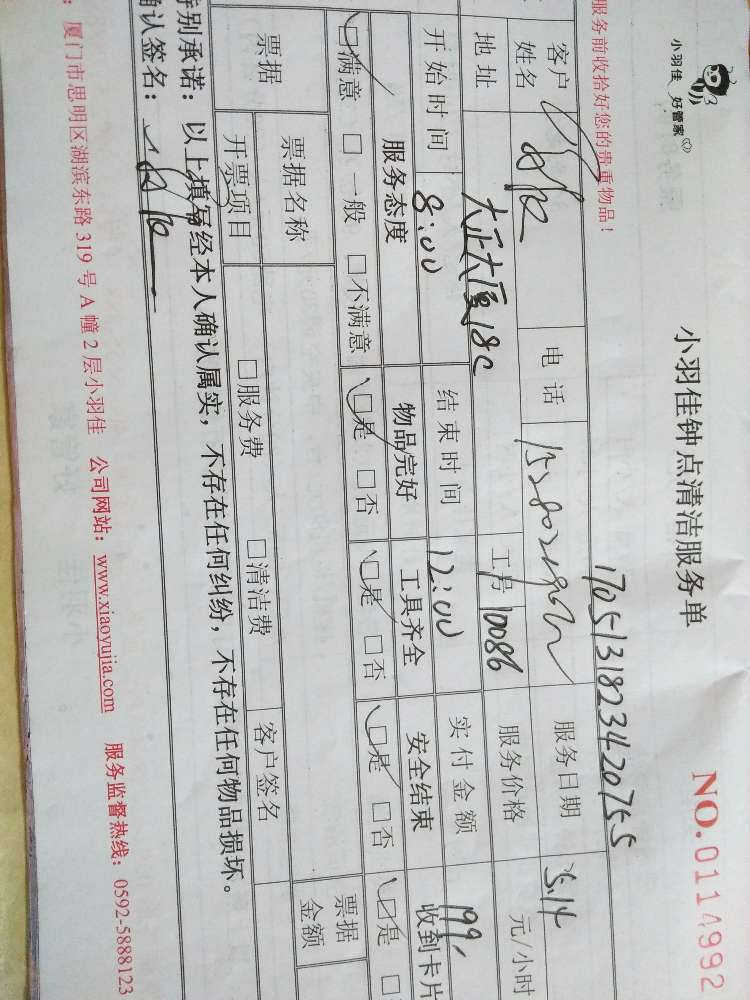 小羽佳 好管家
小羽佳钟点清洁服务单
NO.0114992
服务前收拾好您的贵重物品！
1705131823420755
客户姓名 电话 服务日期 5.14
地址 大正大厦18C 工号 10086 服务价格 元/小时
开始时间 8:00 结束时间 12:00 实付金额 199
服务态度 物品完好 工具齐全 安全结束 收到卡片
☑满意 □一般 □不满意 ☑是 □否 ☑是 □否 ☑是 □否 ☑是 □
票据 票据名称 票据金额
开票项目 □服务费 □清洁费 客户签名
特别承诺：以上填写经本人确认属实，不存在任何纠纷，不存在任何物品损坏。
确认签名：
：厦门市思明区湖滨东路319号A幢2层小羽佳 公司网站：www.xiaoyujia.com 服务监督热线：0592-5888123